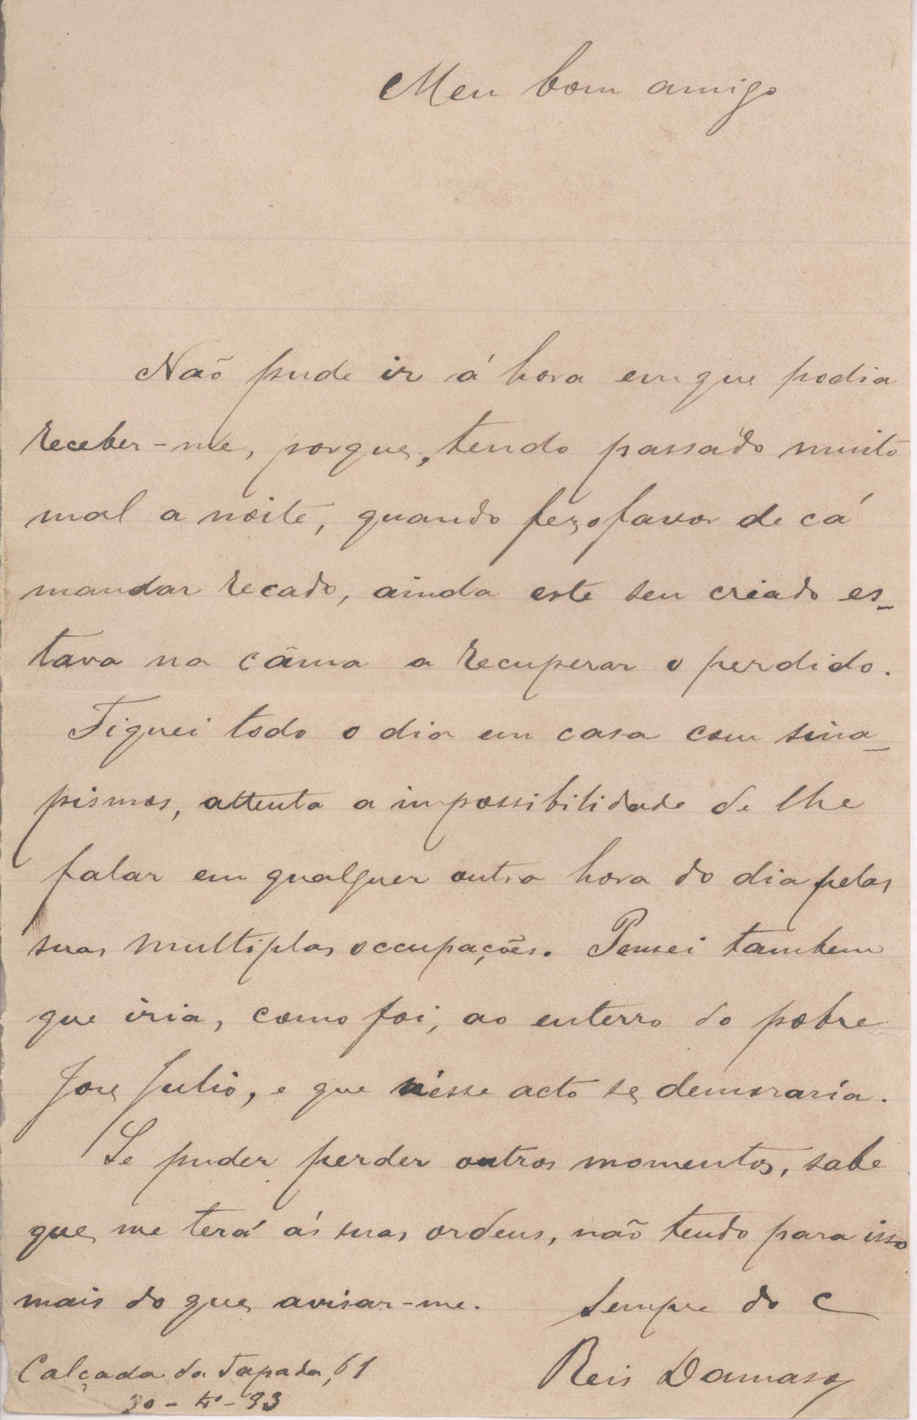 Meu bom amigo
Não pude ir á hora em que podia
receber-me, porque, tendo passado muito
mal a noite, quando fez o favor de cá
mandar recado, ainda este seu criado es-
tava na câma a recuperar o perdido.
Fiquei todo o dia em casa com sina-
pismos, attenta a impossibilidade de lhe
falar em qualquer outra hora do dia pelas
suas multiplas occupações. Pensei tambem
que iria, como foi, ao enterro do pobre
José Julio, e que n'esse acto se demoraria.
Se puder perder outros momentos, sabe
que me terá ás suas ordens, não tendo para isso
mais do que avisar-me. Sempre do C
Calçada da Tapada, 61 Reis Damaso
30 - - 93